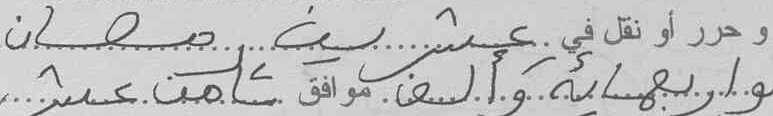 و حرر أو نقل في عشرين رمضان
واربعمائة وألف موافق ثامن عشر